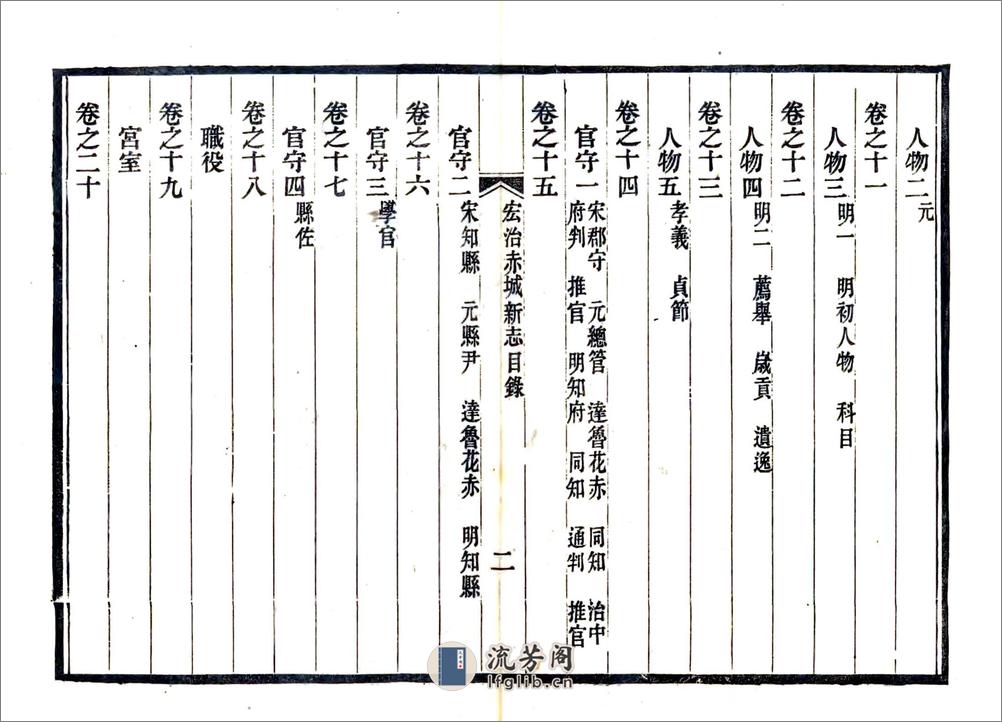 人物二元
卷之十一
人物三明一 明初人物 科目
卷之十二
人物四明二 薦舉 歲貢 遺逸
卷之十三
人物五孝義 貞節
卷之十四
官守一宋郡守 元總管 達魯花赤 同知 治中
府判 推官 明知府 同知 通判 推官
卷之十五
宏治赤城新志目錄 二
官守二宋知縣 元縣尹 達魯花赤 明知縣
卷之十六
官守三學官
卷之十七
官守四縣佐
卷之十八
職役
卷之十九
宮室
卷之二十
流芳阁
lfglib.cn